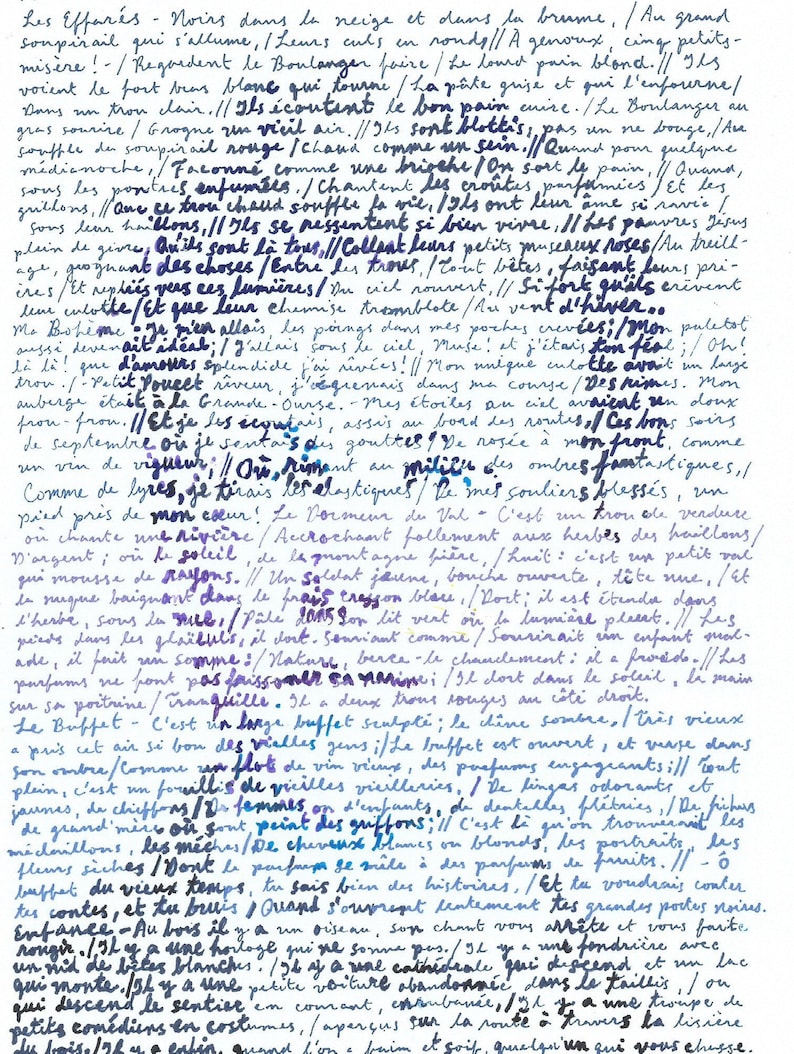 Les Effarés - Noirs dans la neige et dans la brume, / Au grand
soupirail qui s'allume, / Leurs culs en ronds // A genoux, cinq petits-
misère ! - / Regardent le Boulanger faire / Le lourd pain blond. // Ils
voient le fort bras blanc qui tourne / La pâte grise et qui l'enfourne /
Dans un trou clair. // Ils écoutent le bon pain cuire. / Le Boulanger au
gras sourire / Grogne un vieil air. // Ils sont blottis, pas un ne bouge, / Au
souffle du soupirail rouge / Chaud comme un sein. // Quand pour quelque
médianoche, / Façonné comme une brioche / On sort le pain, // Quand,
sous les poutres enfumées, / Chantent les croûtes parfumées / Et les
grillons, // Que ce trou chaud souffle la vie, / Ils ont leur âme si ravie /
sous leur haillons, // Ils se ressentent si bien vivre, // Les pauvres Jésus
plein de givre, Qu'ils sont là tous, // Collant leurs petits museaux roses / Au treill-
age, grognant des choses / Entre les trous, / Tout bêtes, faisant leurs pri-
ères / Et repliés vers ces lumières / Du ciel rouvert, // Si fort qu'ils crèvent
leur culotte / Et que leur chemise tremblote / Au vent d'hiver..
Ma Bohème - Je m'en allais, les poings dans mes poches crevées ; / Mon paletot
aussi devenait idéal ; / J'allais sous le ciel, Muse ! et j'étais ton féal ; / Oh !
là là ! que d'amours splendide j'ai rêvées ! // Mon unique culotte avait un large
trou. / - Petit Poucet rêveur, j'égrenais dans ma course / Des rimes. Mon
auberge était à la Grande-Ourse. - Mes étoiles au ciel avaient un doux
frou-frou. // Et je les écoutais, assis au bord des routes, / Ces bons soirs
de septembre où je sentais des gouttes / De rosée à mon front, comme
un vin de vigueur ; // Où, rimant au milieu des ombres fantastiques, /
Comme de lyres, je tirais les élastiques / De mes souliers blessés, un
pied près de mon cœur ! Le Dormeur du Val - C'est un trou de verdure
où chante une rivière / Accrochant follement aux herbes des haillons /
D'argent ; où le soleil, de la montagne fière, / Luit : c'est un petit val
qui mousse de rayons. // Un soldat jeune, bouche ouverte, tête nue, / Et
la nuque baignant dans le frais cresson bleu, / Dort ; il est étendu dans
l'herbe, sous la nue, / Pâle dans son lit vert où la lumière pleut. // Les
pieds dans les glaïeuls, il dort. Souriant comme / Sourirait un enfant mal-
ade, il fait un somme : / Nature, berce-le chaudement : il a froid. // Les
parfums ne font pas frissonner sa narine ; / Il dort dans le soleil, la main
sur sa poitrine / Tranquille. Il a deux trous rouges au côté droit.
Le Buffet - C'est un large buffet sculpté ; le chêne sombre, / Très vieux
a pris cet air si bon des vielles gens ; / Le buffet est ouvert, et verse dans
son ombre / Comme un flot de vin vieux, des parfums engageants ; // Tout
plein, c'est un fouillis de vieilles vieilleries, / De linges odorants et
jaunes, de chiffons / De femmes ou d'enfants, de dentelles flétries, / De fichus
de grand'mère où sont peint des griffons ; // C'est là qu'on trouverait les
médaillons, les mèches / De cheveux blancs ou blonds, les portraits, les
fleurs sèches / Dont le parfum se mêle à des parfums de fruits. // - Ô
buffet du vieux temps, tu sais bien des histoires, / Et tu voudrais conter
tes contes, et tu bruis / Quand s'ouvrent lentement tes grandes portes noires.
Enfance - Au bois il y a un oiseau, son chant vous arrête et vous faite
rougir. / Il y a une horloge qui ne sonne pas. / Il y a une fondrière avec
un nid de bêtes blanches. / Il y a une cathédrale qui descend et un lac
qui monte. / Il y a une petite voiture abandonnée dans le taillis, / ou
qui descend le sentier en courant, enrubannée, / Il y a une troupe de
petits comédiens en costumes, / aperçus sur la route à travers la lisière
du bois. / Il y a enfin, quand l'on a faim et soif, quelqu'un qui vous chasse.